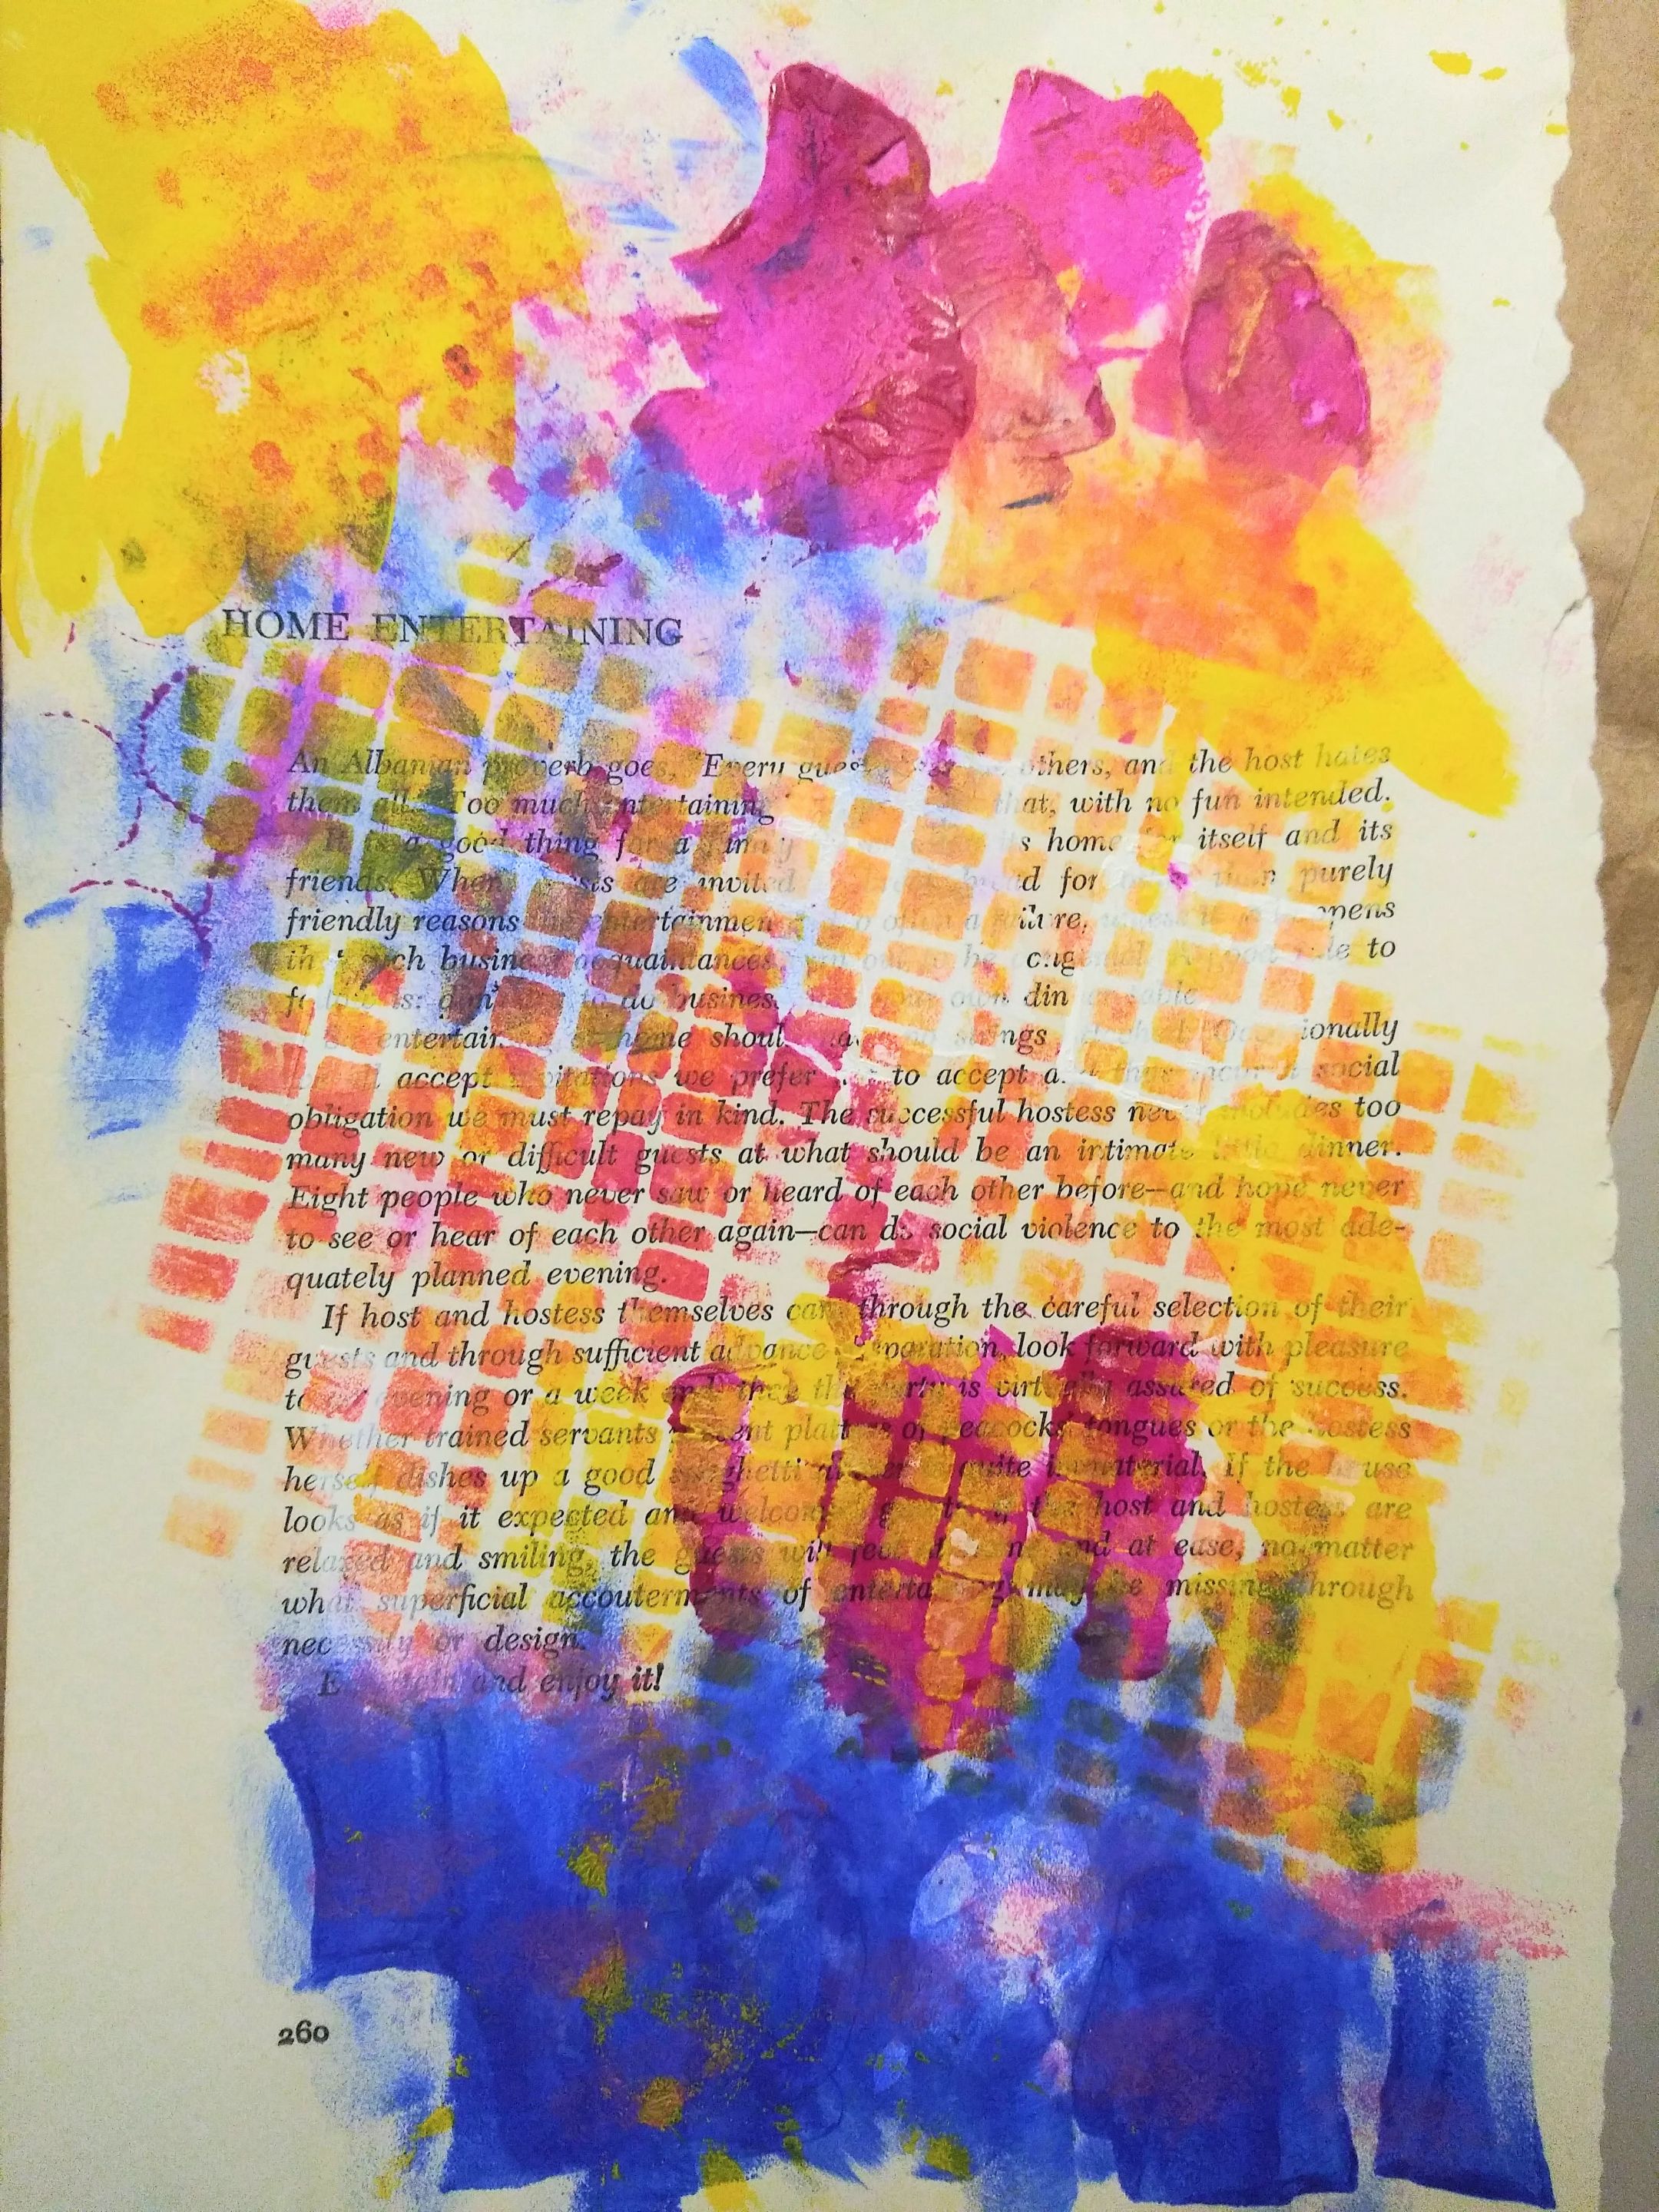 HOME ENTERTAINING
An Albanian proverb goes, "Every guest hates the others, and the host hates
them all." Too much entertaining that, with no fun intended.
It is a good thing for a family home for itself and its
friends. When guests are invited for purely
friendly reasons the entertainment is often a failure, unless it happens
that such business acquaintances turn out to be congenial. A good rule to
follow is: don't to do business your own dinner table.
entertaining at home should have no strings attached. Occasionally
accept invitations we prefer not to accept and thus incur a social
obligation we must repay in kind. The successful hostess never includes too
many new or difficult guests at what should be an intimate little dinner.
Eight people who never saw or heard of each other before—and hope never
to see or hear of each other again—can do social violence to the most ade-
quately planned evening.
If host and hostess themselves can, through the careful selection of their
guests and through sufficient advance preparation, look forward with pleasure
to an evening or a week end, then the party is virtually assured of success.
Whether trained servants present platters of peacocks' tongues or the hostess
herself dishes up a good spaghetti dinner is quite immaterial. If the house
looks as if it expected and welcomed guests, if the host and hostess are
relaxed and smiling, the guests will feel and at ease, no matter
what superficial accouterments of entertaining may be missing through
necessity or design.
Entertain and enjoy it!
260